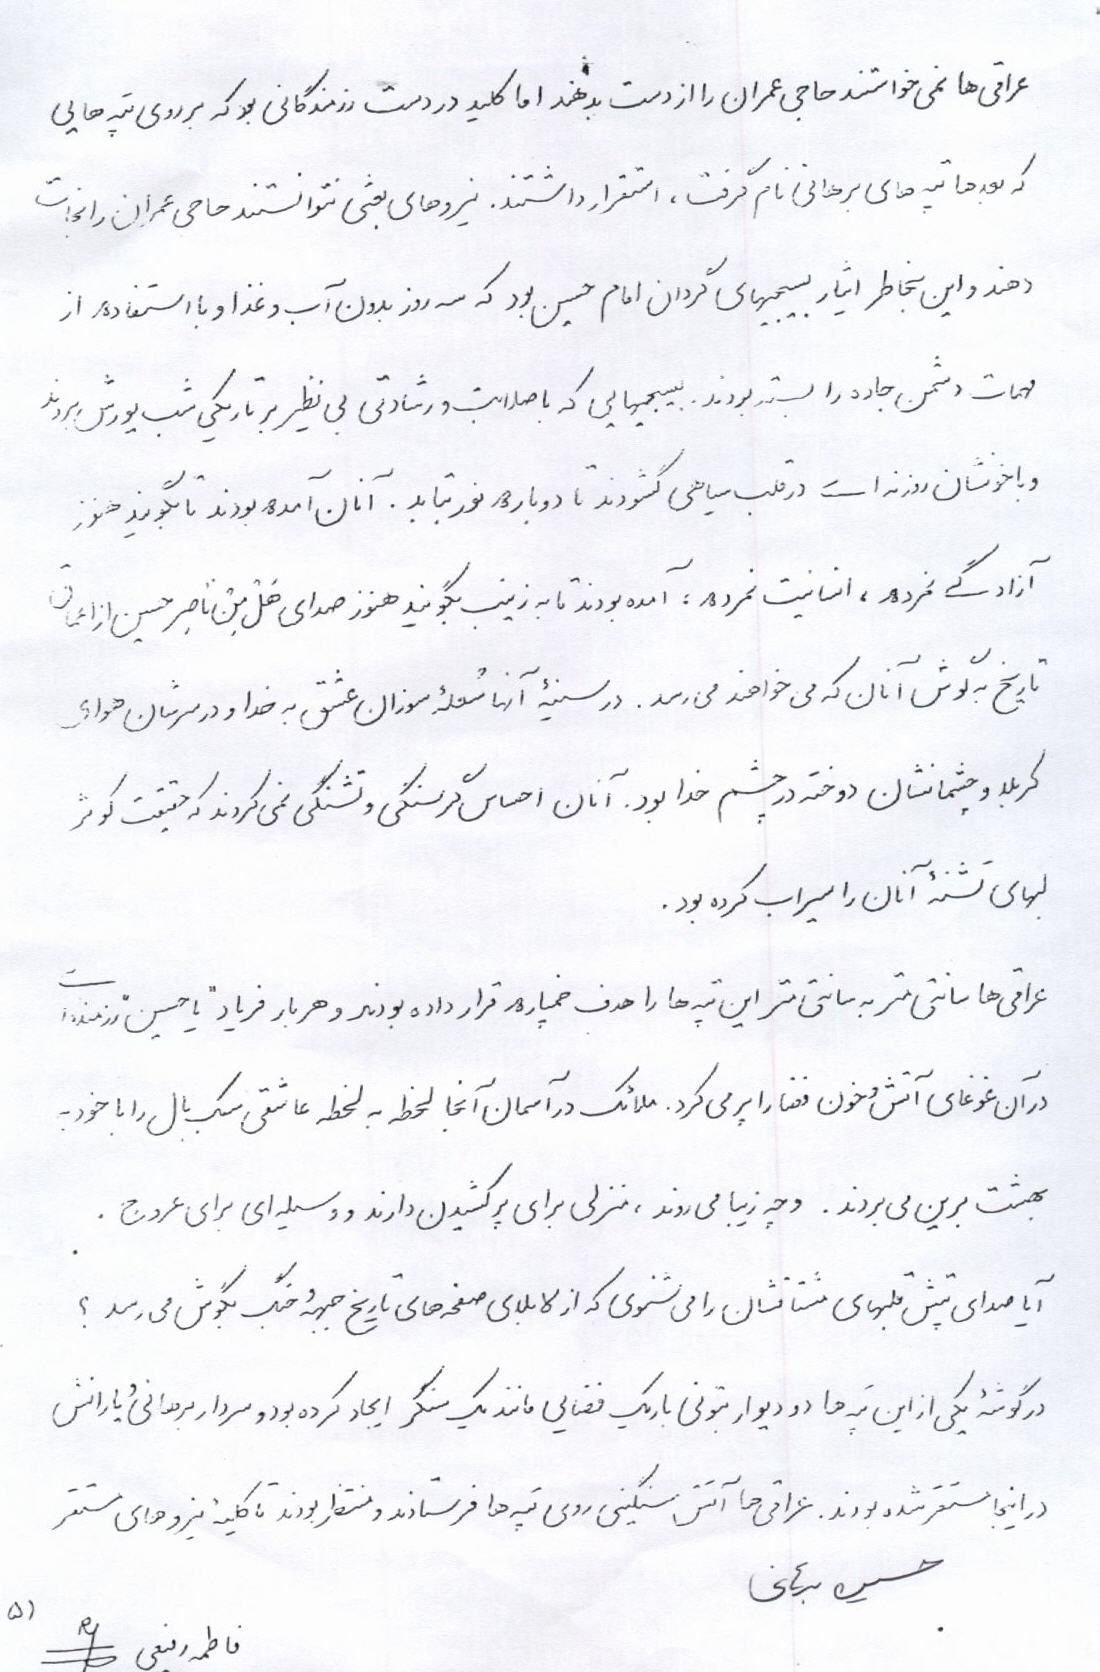 عراقی‌ها نمی‌خواستند حاجی عمران را از دست بدهند اما کلید در دست رزمندگانی بود که بر روی تپه‌هایی
که بعدها تپه‌های برهانی نام گرفت، استقرار داشتند. نیروهای بعثی نتوانستند حاجی عمران را نجات
دهند و این بخاطر ایثار بسیجیهای گردان امام حسین بود که سه روز بدون آب و غذا و با استفاده از
مهمات دشمن جاده را بسته بودند. بسیجیهایی که با صلابت و رشادتی بی نظیر بر تاریکی شب یورش بردند
و با خونشان روزنه است در قلب سیاهی گشودند تا دوباره نور بتابد. آنان آمده بودند تا بگویند هنوز
آزادگی نمرده، انسانیت نمرده؛ آمده بودند تا به زینب بگویند هنوز صدای هَل مِن ناصر حسین از اعماق
تاریخ به گوش آنان که می‌خواهند می‌رسد. در سینهٔ آنها شعلهٔ سوزان عشق به خدا و در سرشان هوای
کربلا و چشمانشان دوخته در چشم خدا بود. آنان احساس گرسنگی و تشنگی نمی‌کردند که حقیقت کوثر
لبهای تشنهٔ آنان را سیراب کرده بود.
عراقی‌ها سانتی متر به سانتی متر این تپه‌ها را هدف خمپاره قرار داده بودند و هر بار فریاد "یا حسین"
در آن غوغای آتش و خون فضا را پر می‌کرد. ملائک در آسمان آنجا لحظه به لحظه عاشقی سبک بال را با خود به
بهشت برین می‌بردند. و چه زیبا می‌روند، منزلی برای پر کشیدن دارند و وسیله‌ای برای عروج.
آیا صدای تپش قلبهای مشتاقشان را می‌شنوی که از لابلای صفحه‌های تاریخ جبههٔ جنگ بگوش می‌رسد؟
در گوشهٔ یکی از این تپه‌ها دو دیوار بتونی باریک فضایی مانند یک سنگر ایجاد کرده بود و سردار برهانی و یارانش
در اینجا مستقر شده بودند. عراقی‌ها آتش سنگینی روی تپه‌ها فرستادند و منتظر بودند تا کلیهٔ نیروهای مستقر
حسین برهانی
فاطمه رفیعی